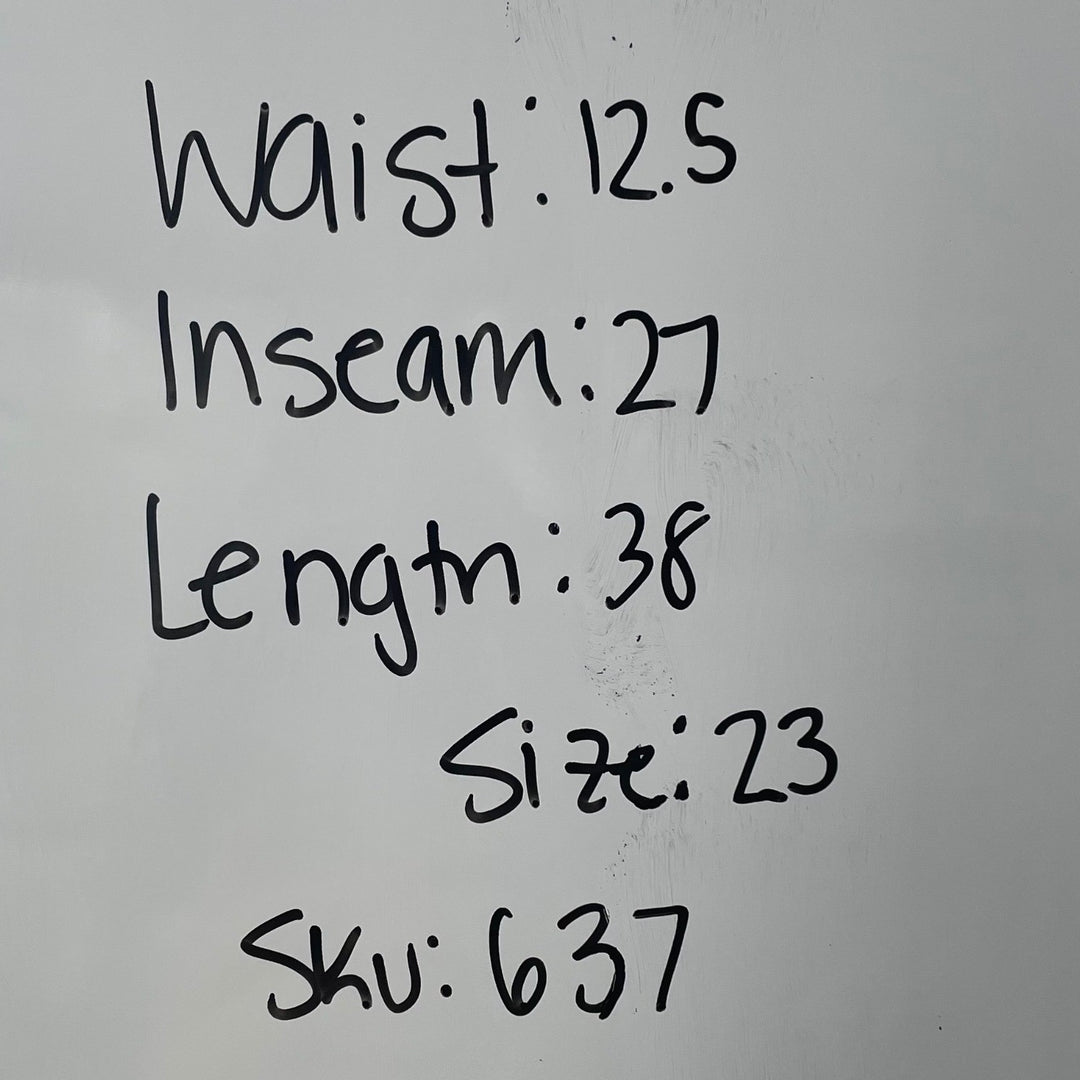 Waist: 12.5
Inseam: 27
Length: 38
Size: 23
Sku: 637